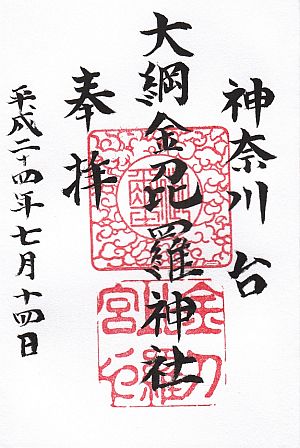 神奈川台
大綱金毘羅神社
奉拝
平成二十四年七月十四日